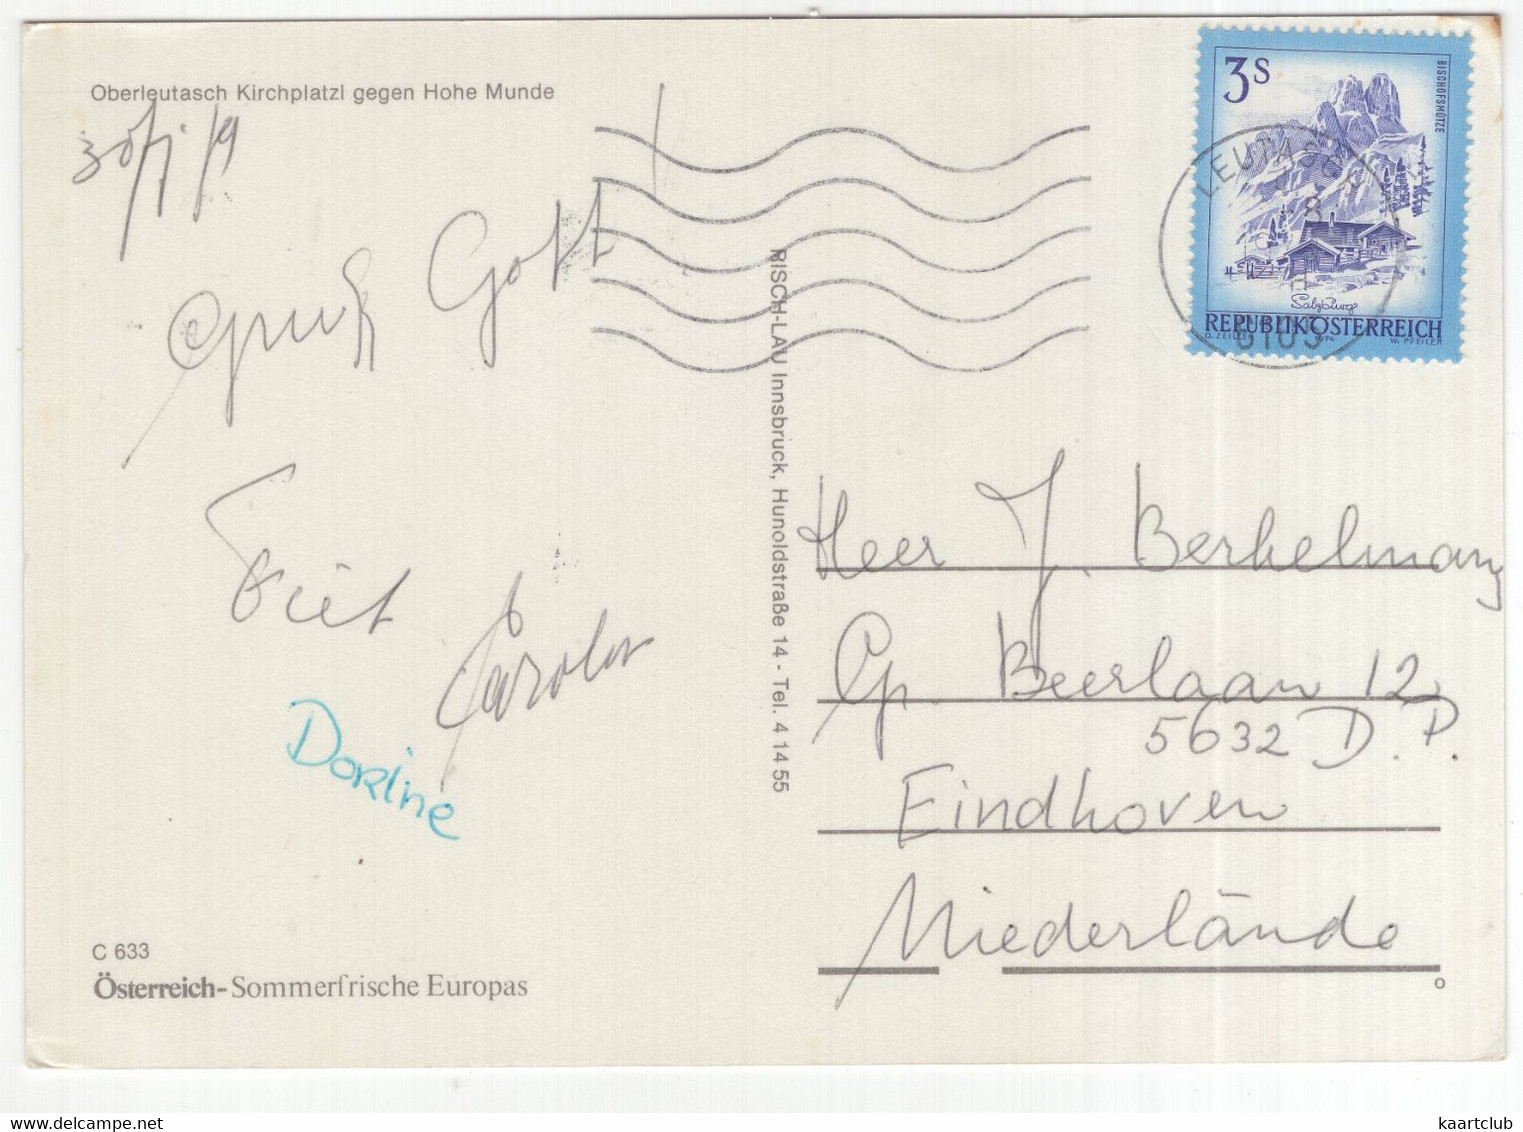 Oberleutasch Kirchplatzl gegen Hohe Munde
Grüß Gott
Carola
Dorine
C 633
Österreich-Sommerfrische Europas
RISCH-LAU Innsbruck, Hunoldstraße 14 - Tel. 4 14 55
3 S
BISCHOFSMÜTZE
Salzburg
REPUBLIK ÖSTERREICH
O. ZEILLER 1974 W. PFEILER
LEUTASCH
6105
Heer J. Berkelmans
Beerlaan 12
5632 D.P.
Eindhoven
Niederlände
kaartclub